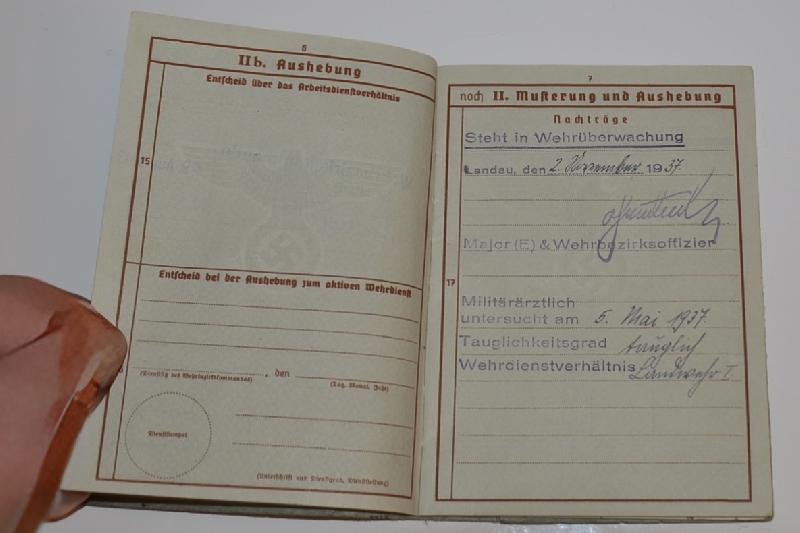 5
II b. Aushebung
Entscheid über das Arbeitsdienstverhältnis
15
Entscheid bei der Aushebung zum aktiven Wehrdienst
, den
(Dienstsitz des Wehrbezirkskommandos)
(Tag, Monat, Jahr)
Dienststempel
(Unterschrift und Dienstgrad, Dienststellung)
7
noch II. Musterung und Aushebung
Nachträge
Steht in Wehrüberwachung
Landau, den 2. November 1937.
Major (E) & Wehrbezirksoffizier
17
Militärärztlich
untersucht am 5. Mai 1937.
Tauglichkeitsgrad tauglich
Wehrdienstverhältnis Landwehr I